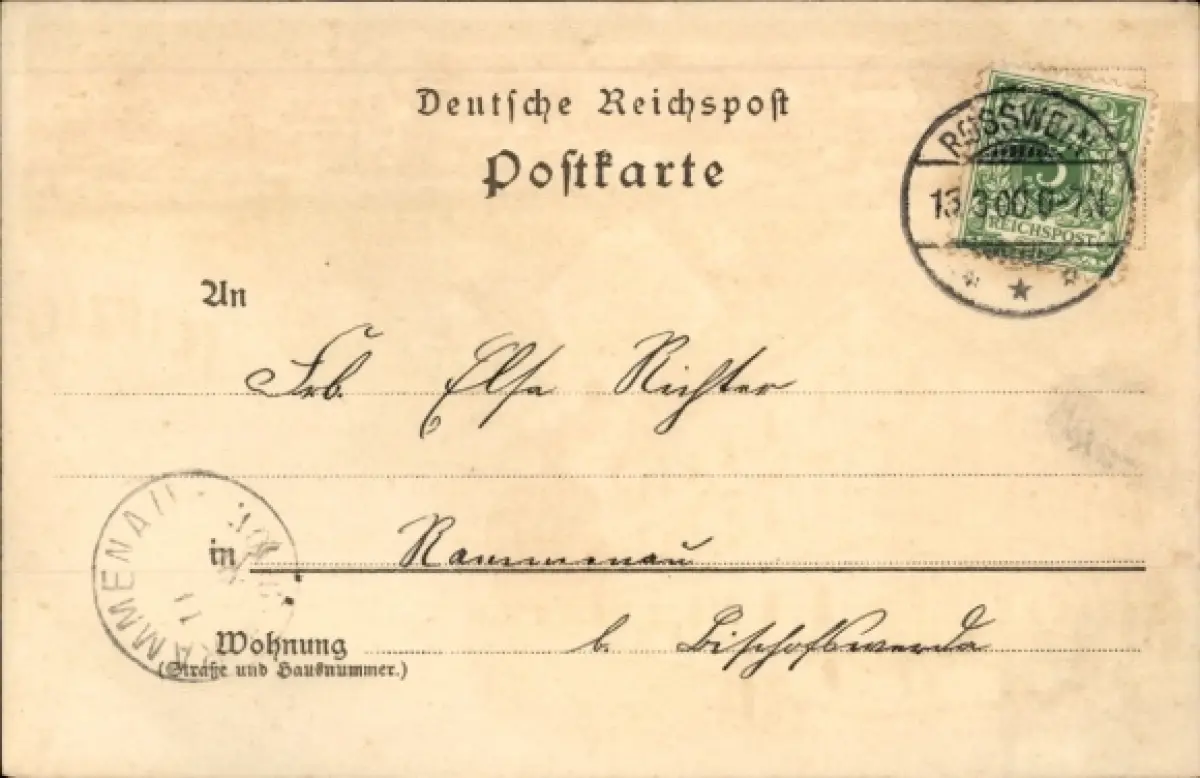 Deutsche Reichspost
Postkarte
ROSSWEIN
13.3.00.6-7N.
5
REICHSPOST
An
Frl. Elsa Richter
in Rammenau
RAMMENAU
Wohnung b. Bischofswerda
(Straße und Hausnummer.)